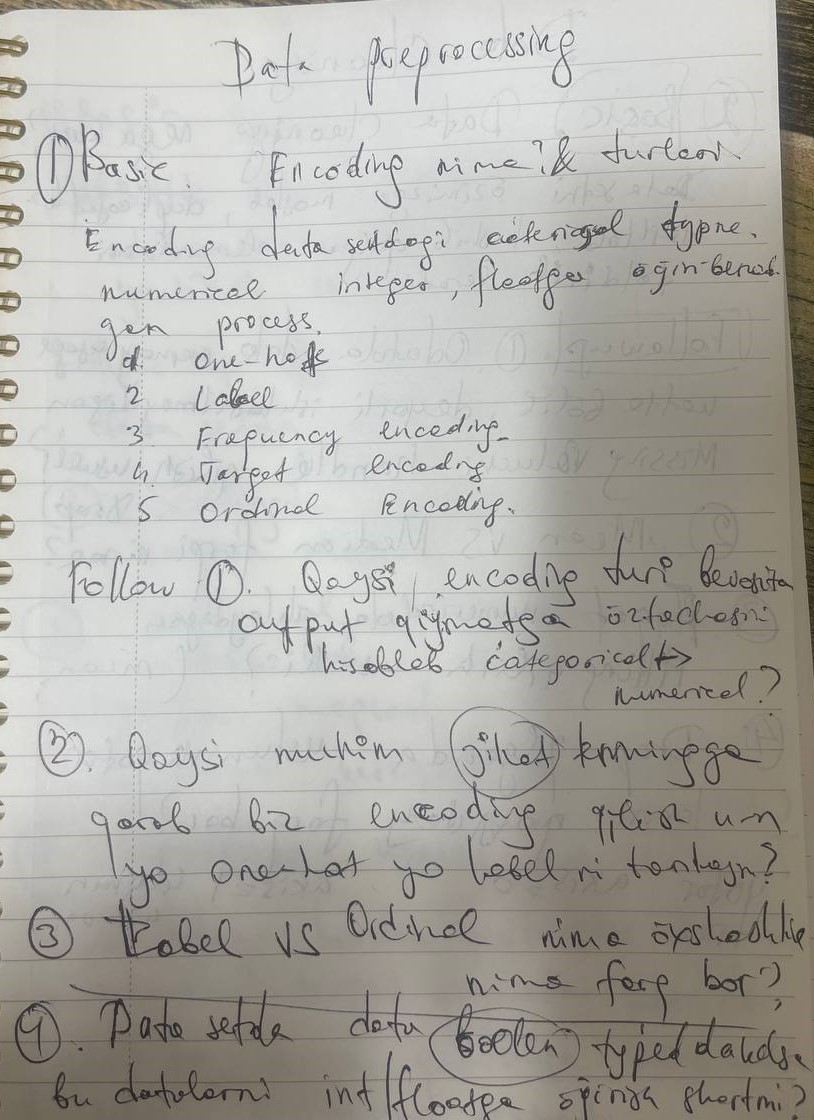 Data preprocessing
① Basic. Encoding nima? & turlari.
Encoding data setdagi categorical typne.
numerical integer, floatga
gan process.
1. one-hot
2 Label
3 Frequency encoding.
4. Target encodng
5 Ordinal Encoding.
Follow ①. Qaysi encoding turi bevosita
output qiymatga
hisoblab categorical →
numerical?
② Qaysi muhim jihat
qarab biz encoding qilish u-n
yo one-hot yo label ni tanlaysn?
③ Label VS Ordinal nima öxshashlik
nima farq bor?
④. Data setda data boolen typeda
bu datalarni int/floatga shartmi?